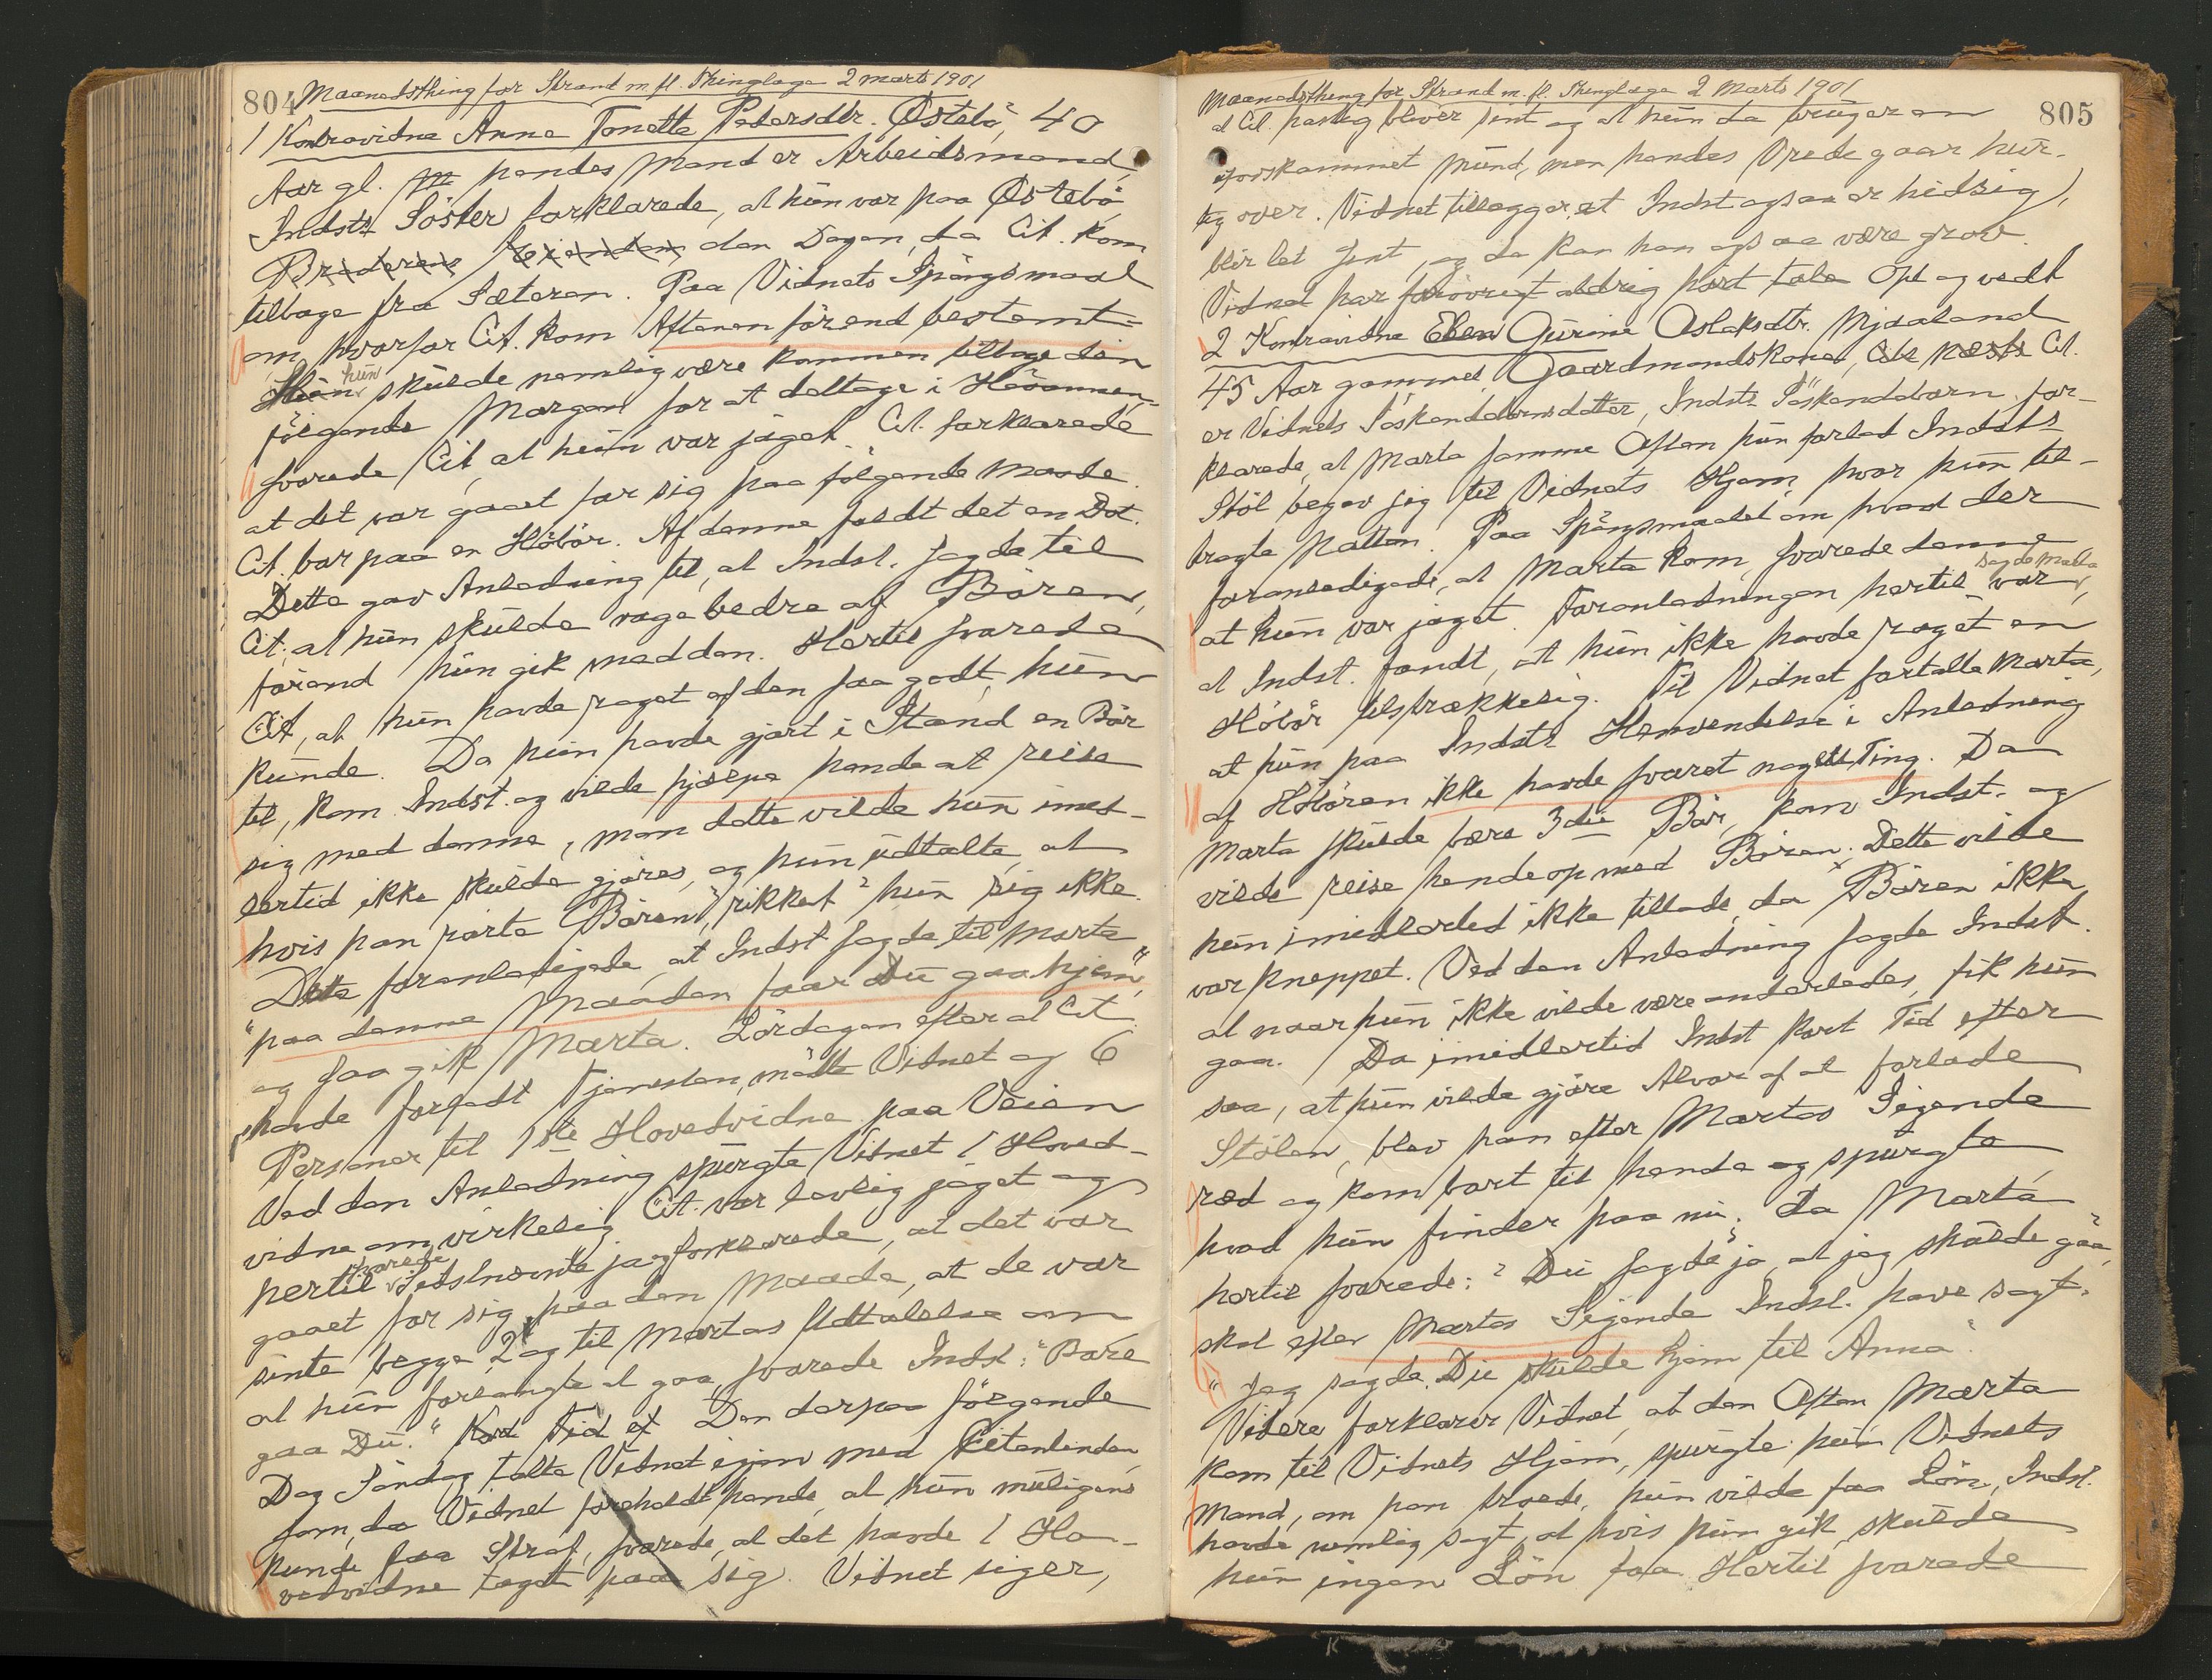 804 Maanedsthing for Strand m. fl. Thinglage 2 marts 1901
1 Kontravidne Anne Tonette Pedersdtr. Østebö, 40
Aar gl. hendes Mand er Arbeidsmand,
Indsts Söster forklarede, at hun var paa Østebö
Broderens Eiendom den Dagen, da Cit. kom
tilbage fra Sæteren. Paa Vidnets Spörgsmaal
om, hvorfor Cit. kom Aftenen förend bestemt-
hun skulde nemlig være kommen tilbage den
fölgende Morgen for at deltage i Höonnen-
svarede Cit, at hun var jaget. Cit. forklarede
at det var gaaet for sig paa fölgende Maade.
Cit. bar paa en Höbör. Af denne faldt det en Dot.
Dette gav Anledning til, at Indst. sagde til
Cit, at hun skulde rage bedre af Bören,
förend hun gik med den. Hertil svarede
Cit, at hun havde raget af den saa godt, hun
kunde. Da hun havde gjort i Stand en Bör
til, kom Indst. og vilde hjælpe hende at reise
sig med denne, men dette vilde hun imid-
lertid ikke skulde gjöres, og hun udtalte, at
hvis han rörte Bören, "rikket" hun sig ikke.
Dette foranledigede, at Indst sagde til Marta
"paa denne Maaden faar Du gaa hjem",
og saa gik Marta. Lördagen efter at Cit.
havde forladt Tjenesten, mödte Vidnet og 6
Personer til 1ste Hovedvidne paa Veien
Ved den Anledning spurgte Vidnet 1 Hoved-
vidne om virkelig Cit. var lovlig jaget og
hertil svarede forklarede, at det var
gaaet for sig paa den Maade, at de var
sinte begge 2 og til Martas Udtalelse om
at hun forlangte at gaa, svarede Indst: "Bare
gaa Du." Kort Tid ef Den derpaa fölgende
Dag Söndag talte Vidnet igjen med Citantinden
som, da Vidnet foreholdt hende, at hun muligens
kunde faa Straf, svarede, at det havde 1 Ho-
vedvidne taget paa sig. Vidnet siger,
Maanedsthing for Strand m. fl. Thinglage 2 Marts 1901 805
at Cit. hastig bliver sint og at hun da bruger en
uforskammet Mund, men hendes Vrede gaar hur-
tig over. Vidnet tillægger, at Indst ogsaa er hidsig,
blir let sint, og da kan han ogsaa være grov.
Vidnet har forövrigt aldrig hört tale Opt og vedt
2 Kontravidne Ellen Gurine Aslaksdtr. Mjaaland
45 Aar gammel, Gaardmandskone, Cit.
er Vidnets Söskendebarnsdatter, Indsts Söskendebarn. for-
klarede, at Marta samme Aften hun forlod Indsts
Stöl begav sig til Vidnets Hjem, hvor hun til-
bragte Natten. Paa Spörgsmaalet om hvad der
foranledigede, at Marta kom, svarede denne
at hun var jaget. Foranledningen hertil var sagde Marta,
at Indst. fandt, at hun ikke havde raget en
Höbör tilstrækkelig. Til Vidnet fortalte Marta,
at hun paa Indsts Henvendelse i Anledning
af Höbören ikke havde svaret nogen Ting. Da
Marta skulde bære 3die Bör, kom Indst. og
vilde reise hende op med Bören; Dette vilde
hun imidlertid ikke tillade, da Bören ikke
var kneppet. Ved den Anledning sagde Indst.
at naar hun ikke vilde være anderledes, fik hun
gaa. Da imidlertid Indst kort Tid efter
saa, at hun vilde gjöre Alvor af at forlade
Stölen, blev han efter Martas Sigende
ræd og kom bort til hende og spurgte
hvad hun finder paa nu; da Marta
hertil svarede: "Du sagde jo, at jeg skulde gaa,"
skal efter Martas Sigende Indst. have sagt:
"Jeg sagde, Du skulde hjem til Anna".
Videre forklarer Vidnet, at den Aften Marta
kom til Vidnets Hjem, spurgte hun Vidnets
Mand, om han troede, hun vilde faa Lön, Indst.
havde nemlig sagt, at hvis hun gik, skulde
hun ingen Lön faa Hertil svarede